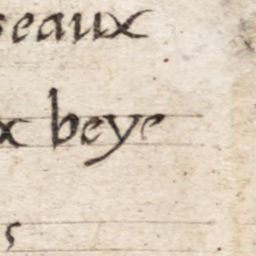 seaux
x beye
s